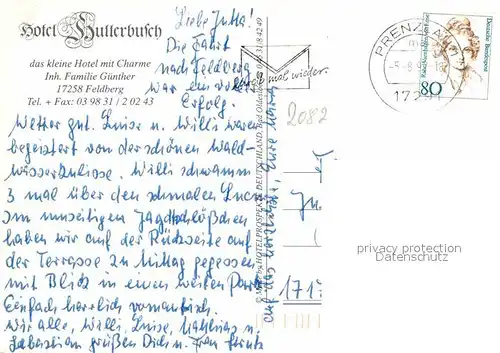 Hotel Hullerbusch
das kleine Hotel mit Charme
Inh. Familie Günther
17258 Feldberg
Tel. + Fax: 03 98 31 / 2 02 43
Liebe Jutta!
Die Fahrt
nach Feldberg
war ein voller
Erfolg.
Wetter gut. Luise u. Willi waren
begeistert von der schönen Wald-
Willi schwamm
3 mal über den schmalen Lucin
Im Jagdschlößchen
haben wir auf der Rückseite auf
der Terrasse zu Mittag gegessen
mit Blick in einen weiten Park
Einfach herrlich romantisch.
Wir alle, Willi, Luise, Matthias u.
Sebastian grüßen Dich u. Frau
auf das Eure
HOTELPROSPEKTE DEUTSCHLAND, Bad
mal wieder.
2082
PRENZLAU
172
Deutsche Bundespost
80
Ju
171
privacy protection
Datenschutz